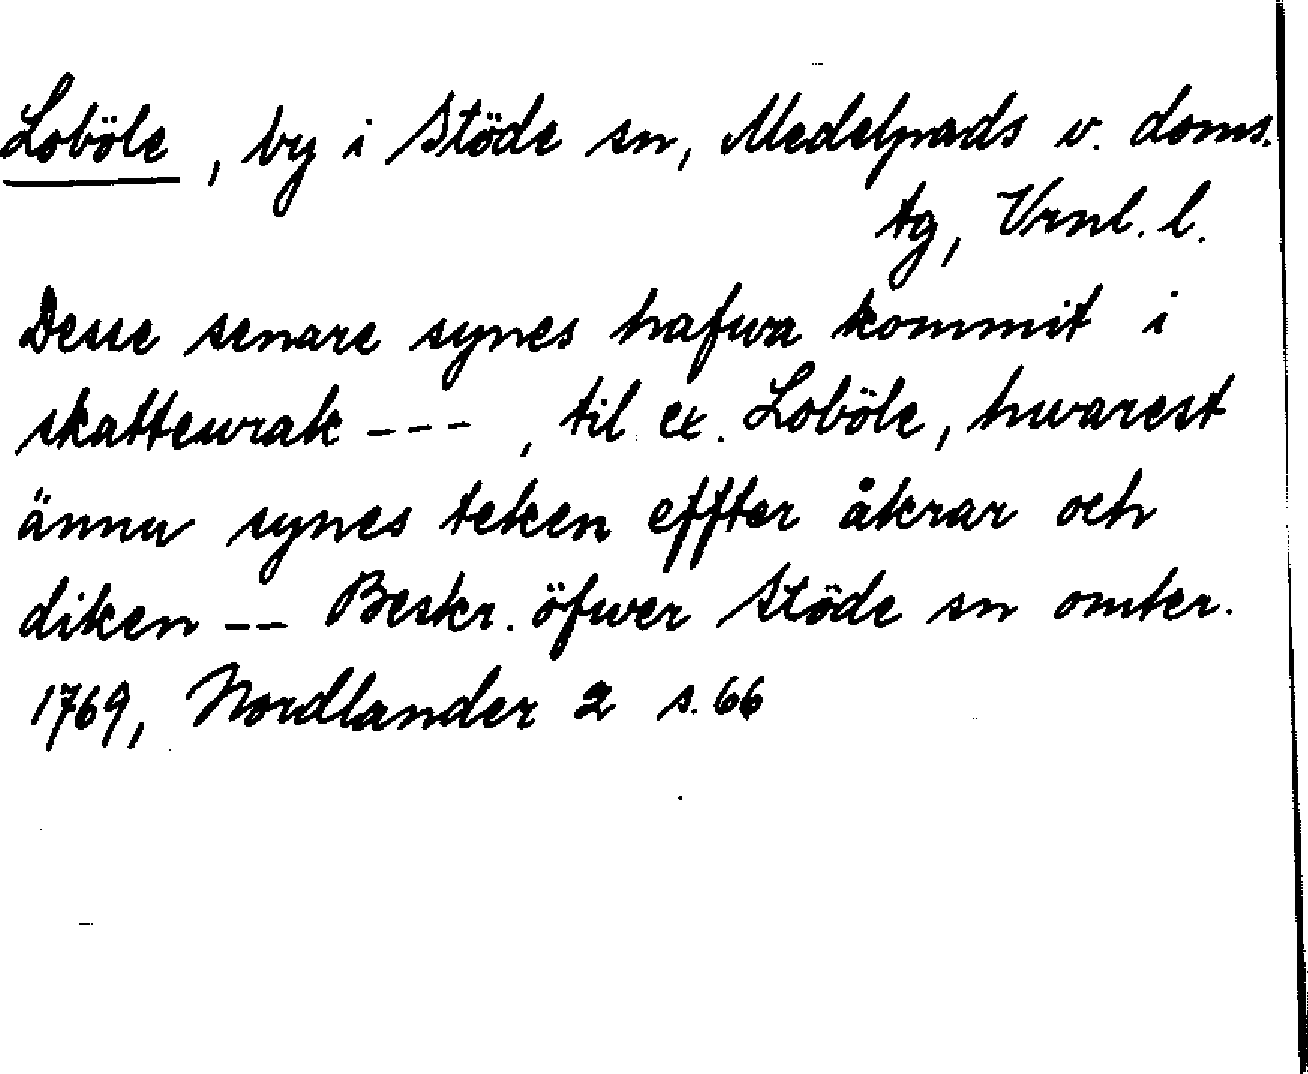 Loböle, by i Stöde sn, Medelpads v. doms.
tg, Vrnl. l.
Desse senare synes hafwa kommit i
skattewrak ---, til ex. Loböle, hwarest
ännu synes teken effter åkrar och
diken -- Beskr. öfwer Stöde sn omkr.
1769, Nordlander 2 s. 66